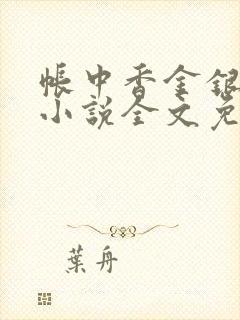 帳中香金銀
小說全文免
葉舟